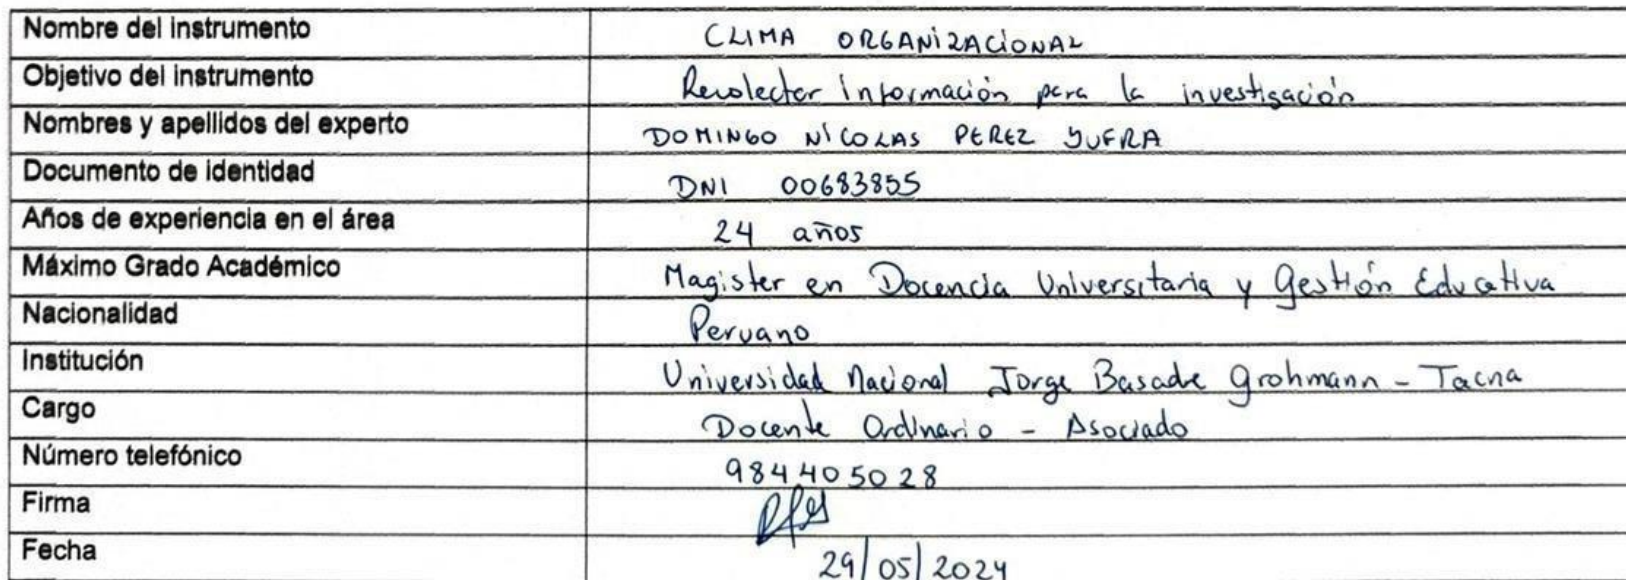 Nombre del instrumento CLIMA ORGANIZACIONAL
Objetivo del instrumento Recolectar Información para la investigación
Nombres y apellidos del experto DOMINGO NICOLAS PEREZ YUFRA
Documento de identidad DNI 00683855
Años de experiencia en el área 24 años
Máximo Grado Académico Magister en Docencia Universitaria y Gestión Educativa
Nacionalidad Peruano
Institución Universidad Nacional Jorge Basadre Grohmann - Tacna
Cargo Docente Ordinario - Asociado
Número telefónico 984405028
Firma
Fecha 29/05/2024